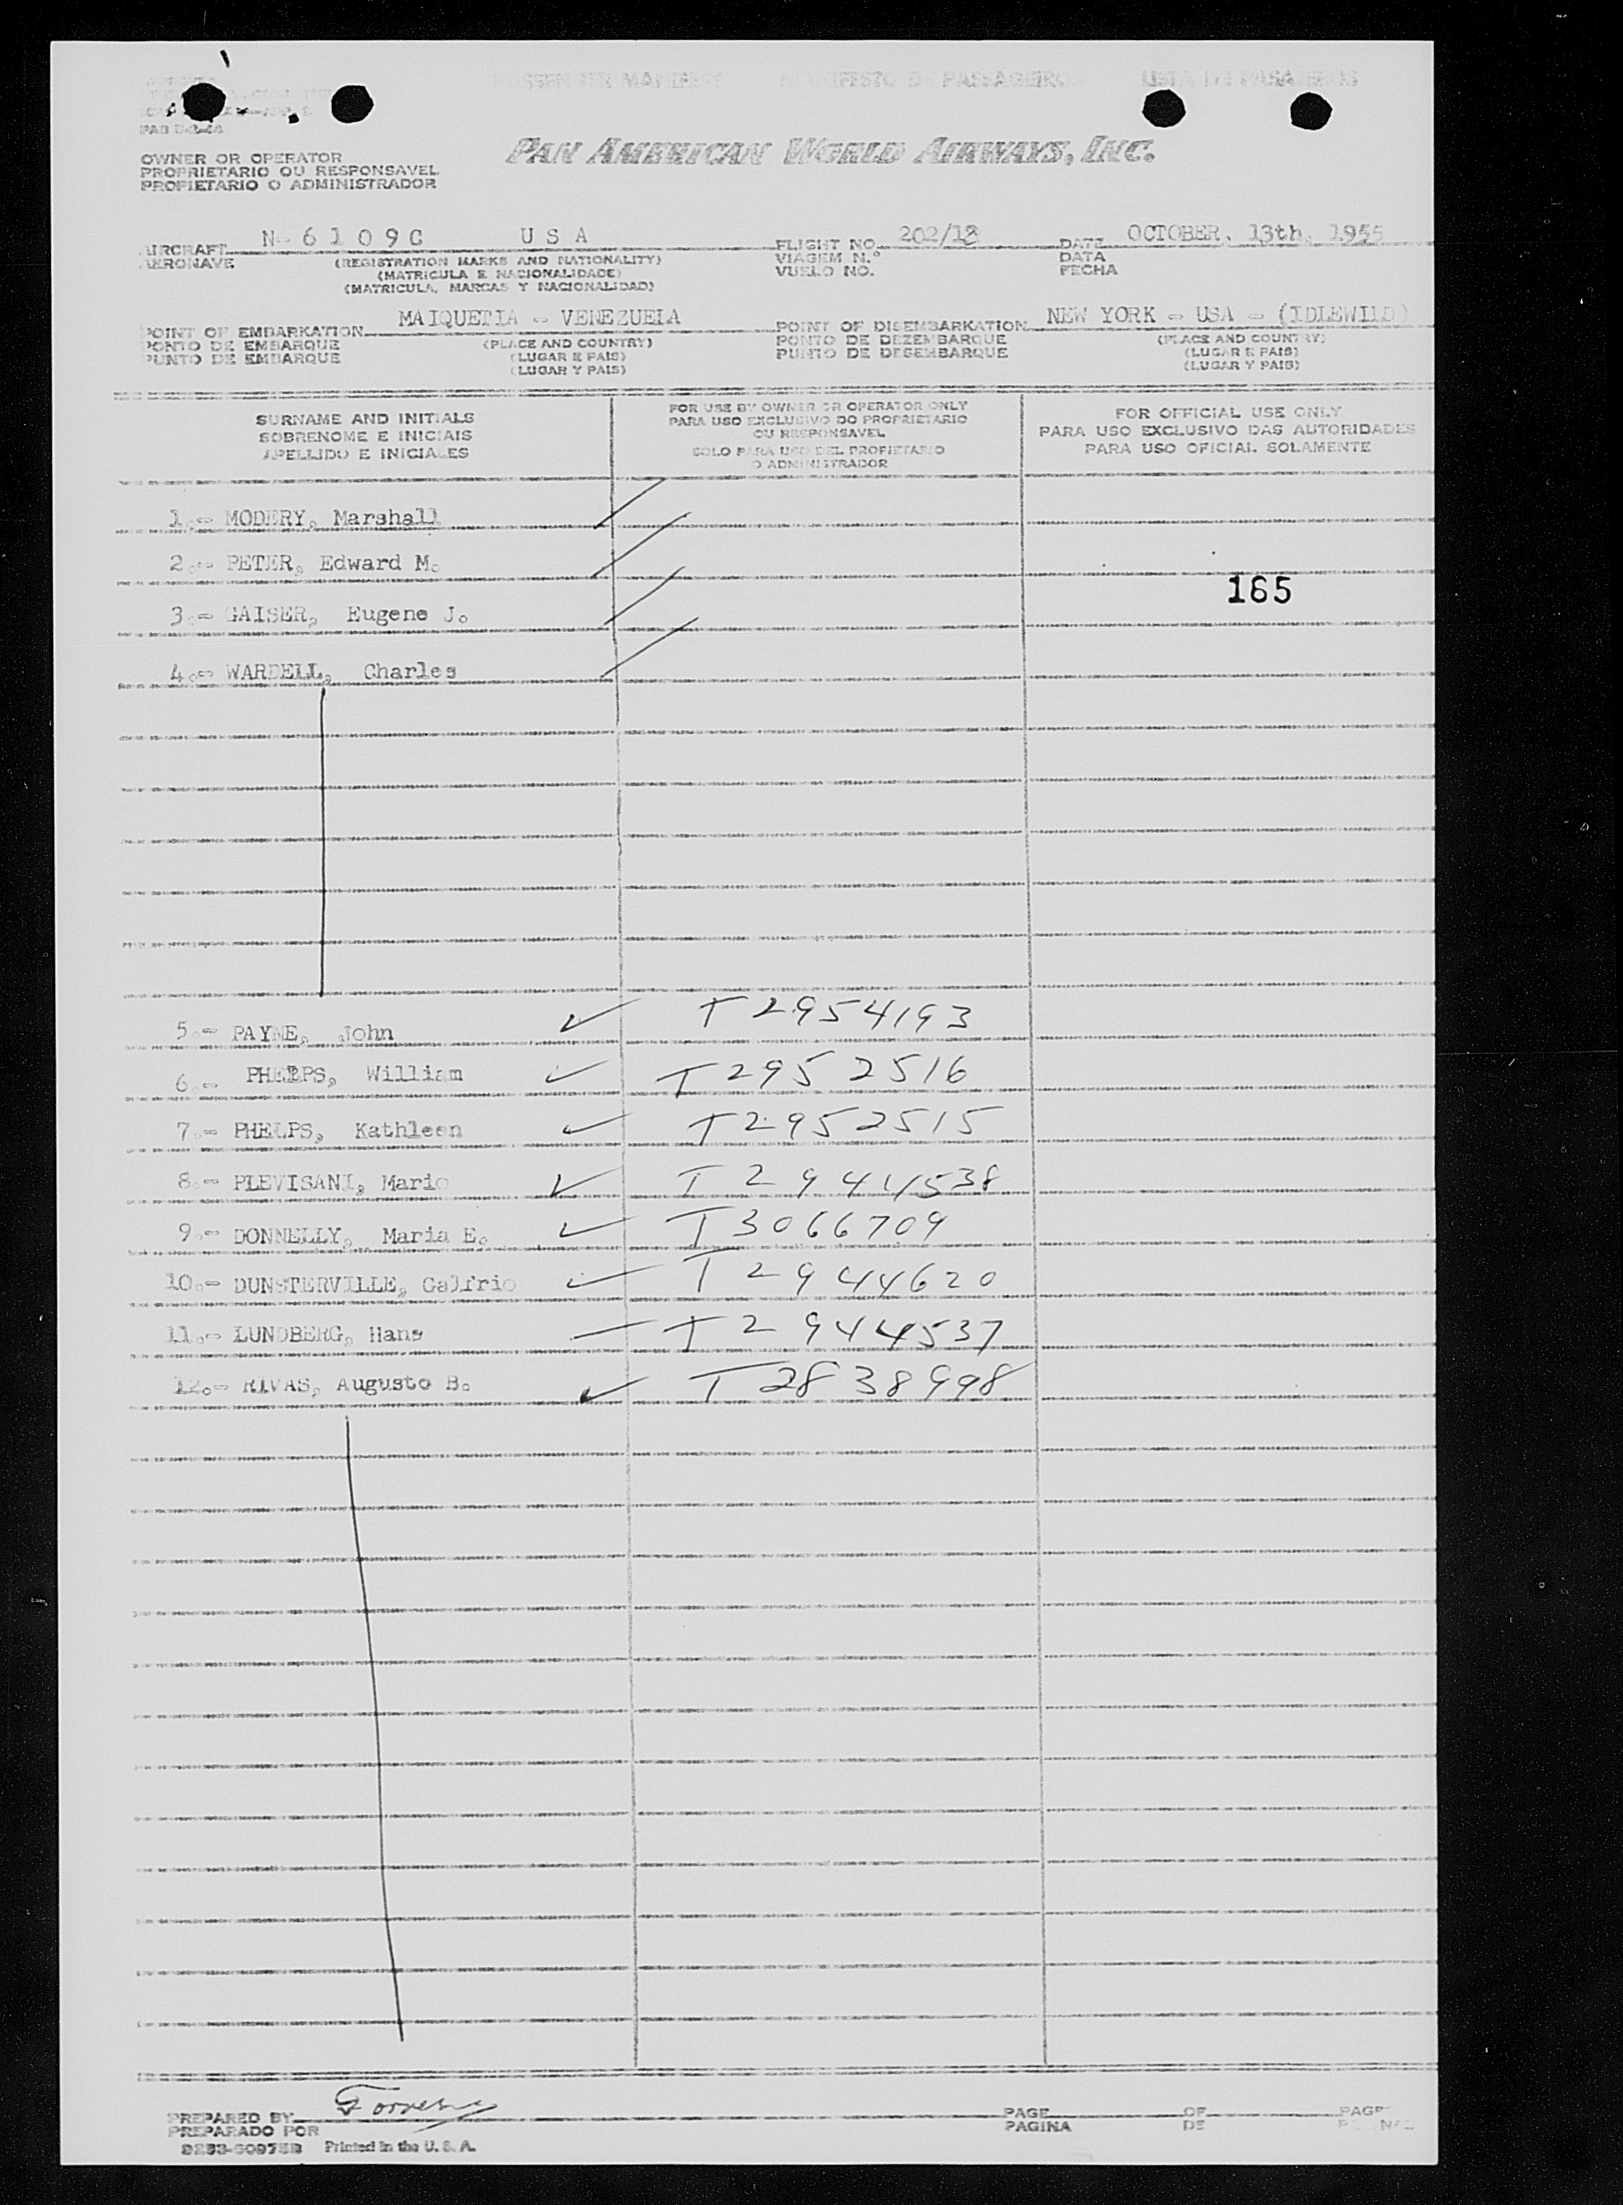 PASSENGER MANIFEST MANIFESTO DE PASSAGEIROS LISTA DE PASAJEROS
OWNER OR OPERATOR
PROPRIETARIO OU RESPONSAVEL
PROPIETARIO O ADMINISTRADOR
PAN AMERICAN WORLD AIRWAYS, INC.
AIRCRAFT N- 6 1 0 9 C U S A FLIGHT NO. 202/13 DATE OCTOBER, 13th, 1955
AERONAVE (REGISTRATION MARKS AND NATIONALITY) VIAGEM N.° DATA
(MATRICULA E NACIONALIDADE) VUELO NO. FECHA
(MATRICULA, MARCAS Y NACIONALIDAD)
POINT OF EMBARKATION MAIQUETIA - VENEZUELA POINT OF DISEMBARKATION NEW YORK - USA - (IDLEWILD)
PONTO DE EMBARQUE (PLACE AND COUNTRY) PONTO DE DEZEMBARQUE (PLACE AND COUNTRY)
PUNTO DE EMBARQUE (LUGAR E PAIS) PUNTO DE DESEMBARQUE (LUGAR E PAIS)
(LUGAR Y PAIS) (LUGAR Y PAIS)
SURNAME AND INITIALS
SOBRENOME E INICIAIS
APELLIDO E INICIALES
FOR USE BY OWNER OR OPERATOR ONLY
PARA USO EXCLUSIVO DO PROPRIETARIO
OU RESPONSAVEL
SOLO PARA USO DEL PROPIETARIO
O ADMINISTRADOR
FOR OFFICIAL USE ONLY
PARA USO EXCLUSIVO DAS AUTORIDADES
PARA USO OFICIAL SOLAMENTE
1.- MODERY, Marshall
2.- PETER, Edward M.
165
3.- GAISER, Eugene J.
4.- WARDELL, Charles
5.- PAYNE, John T2954193
6.- PHELPS, William T2952516
7.- PHELPS, Kathleen T2952515
8.- PLEVISANI, Mario T2944538
9.- DONNELLY, Maria E. T3066709
10.- DUNSTERVILLE, Galfrio T2944620
11.- LUNDBERG, Hans T2944537
12.- RIVAS, Augusto B. T2838998
PREPARED BY PAGE OF PAGE
PREPARADO POR PAGINA DE
Printed in the U. S. A.